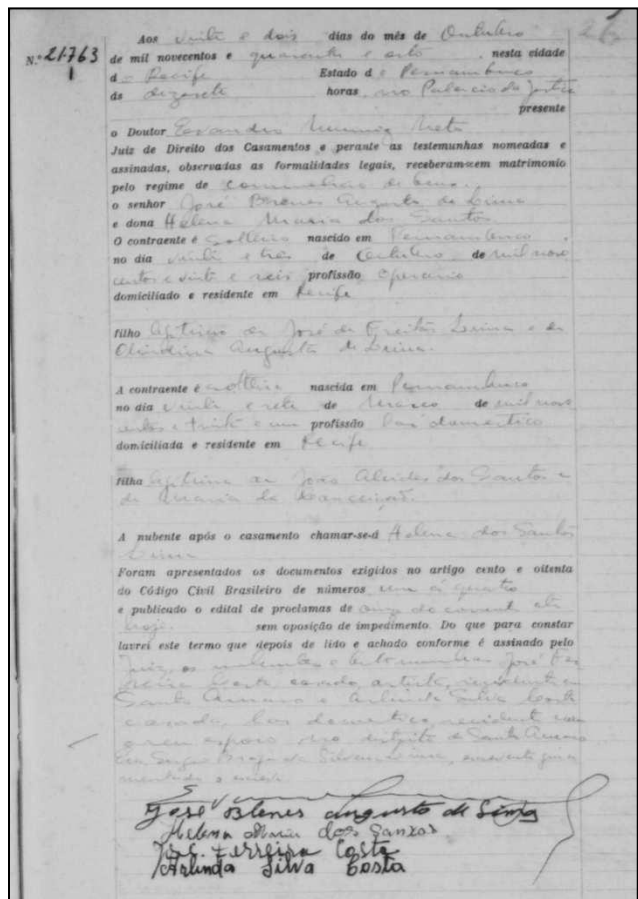 26
N.º 21763
Aos vinte e dois dias do mês de Outubro
de mil novecentos e quarenta e oito, nesta cidade
de Recife Estado de Pernambuco
ás dezesete horas, no Palacio da Justiça
presente
o Doutor Evandro Neto
Juiz de Direito dos Casamentos e perante as testemunhas nomeadas e
assinadas, observadas as formalidades legais, receberam-se em matrimonio
pelo regime de communhão de bens.
o senhor José Blenes Augusto de Lima
e dona Helena Maria dos Santos
O contraente é solteiro nascido em Pernambuco,
no dia vinte e tres de Outubro de mil nove
centos e vinte e seis profissão operario
domiciliado e residente em Recife
filho legitimo de José de Freitas Lima e de
Olindina Augusta de Lima.
A contraente é solteira nascida em Pernambuco
no dia vinte e sete de Março de mil nove
centos e trinta e um profissão lar domestico
domiciliada e residente em Recife
filha legitima de João Alcides dos Santos e
de Maria da Conceição.
A nubente após o casamento chamar-se-á Helena dos Santos
Lima
Foram apresentados os documentos exigidos no artigo cento e oitenta
do Código Civil Brasileiro de números um á quatro
e publicado o edital de proclamas de onze do corrente até
hoje. sem oposição de impedimento. Do que para constar
lavrei este termo que depois de lido e achado conforme é assinado pelo
Juiz, os nubentes e testemunhas José Fer
reira Costa, casado, artista, residente em
Santo Amaro e Arlinda Silva Costa
casada, lar domestico, residente com
o seu esposo no distrito de Santo Amaro
Eu, Sergio Braga da Silveira Lima, escrevente jura
mentado o escrevi
José Blenes Augusto de Lima
Helena Maria dos Santos
José Ferreira Costa
Arlinda Silva Costa